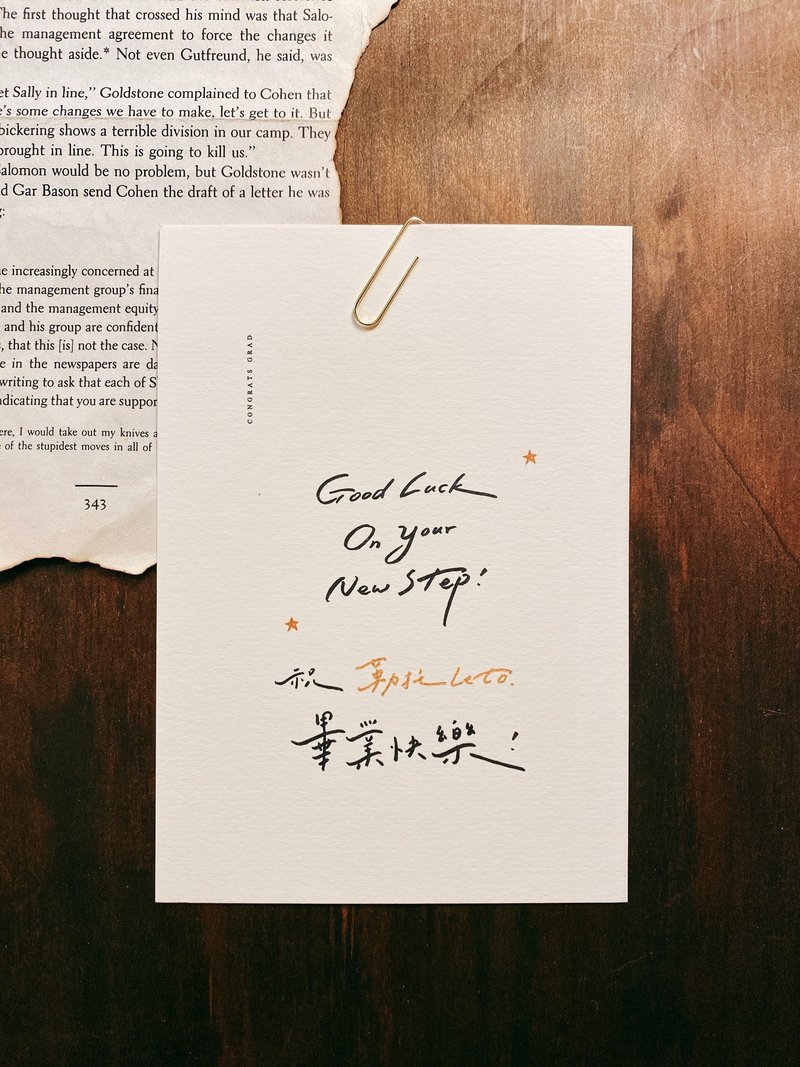 The first thought that crossed his mind was that Salo-
he management agreement to force the changes it
e thought aside.* Not even Gutfreund, he said, was
et Sally in line,” Goldstone complained to Cohen that
e’s some changes we have to make, let’s get to it. But
bickering shows a terrible division in our camp. They
brought in line. This is going to kill us.”
Salomon would be no problem, but Goldstone wasn’t
d Gar Bason send Cohen the draft of a letter he was
g:
e increasingly concerned at
he management group’s fina
and the management equity
and his group are confident
, that this [is] not the case. N
e in the newspapers are da
writing to ask that each of S
ndicating that you are suppor
ere, I would take out my knives a
e of the stupidest moves in all of
343
CONGRATS GRAD
Good Luck
On Your
New Step!
祝 Leto.
畢業快樂!